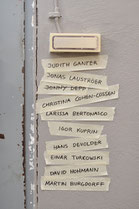 JUDITH GANZER
JONAS LAUSTRÖER
JONNY DEPP
CHRISTINA COHEN-COSSEN
LARISSA BERTONASCO
IGOR KUPRIN
HANS DEVOLDER
EINAR TURKOWSKI
DAVID HOHMANN
MARTIN BURGDORFF